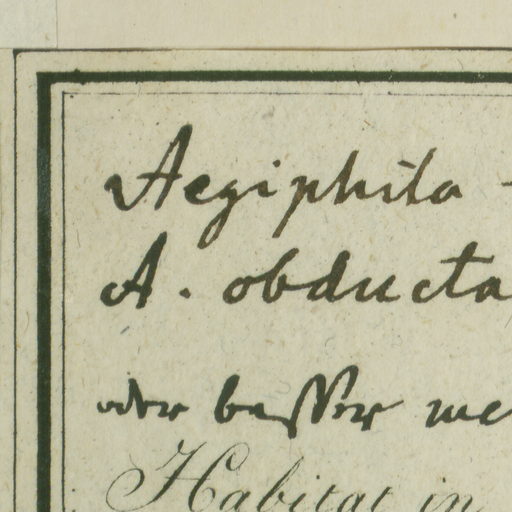 Aegiphila -
A. obducta
oder besser me
Habitat in